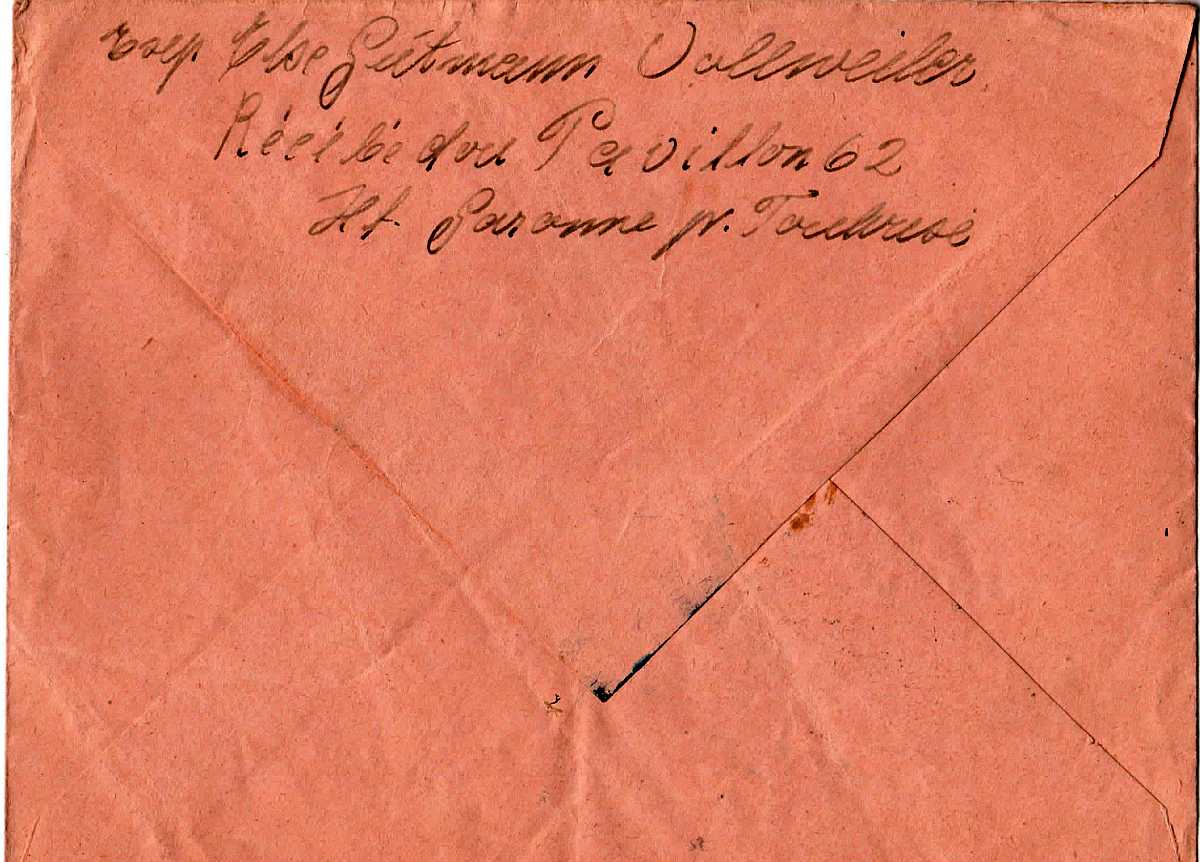 Exp. Else Gutmann Vollweiler
Récébédou Pavillon 62
Ht. Garonne pr. Toulouse